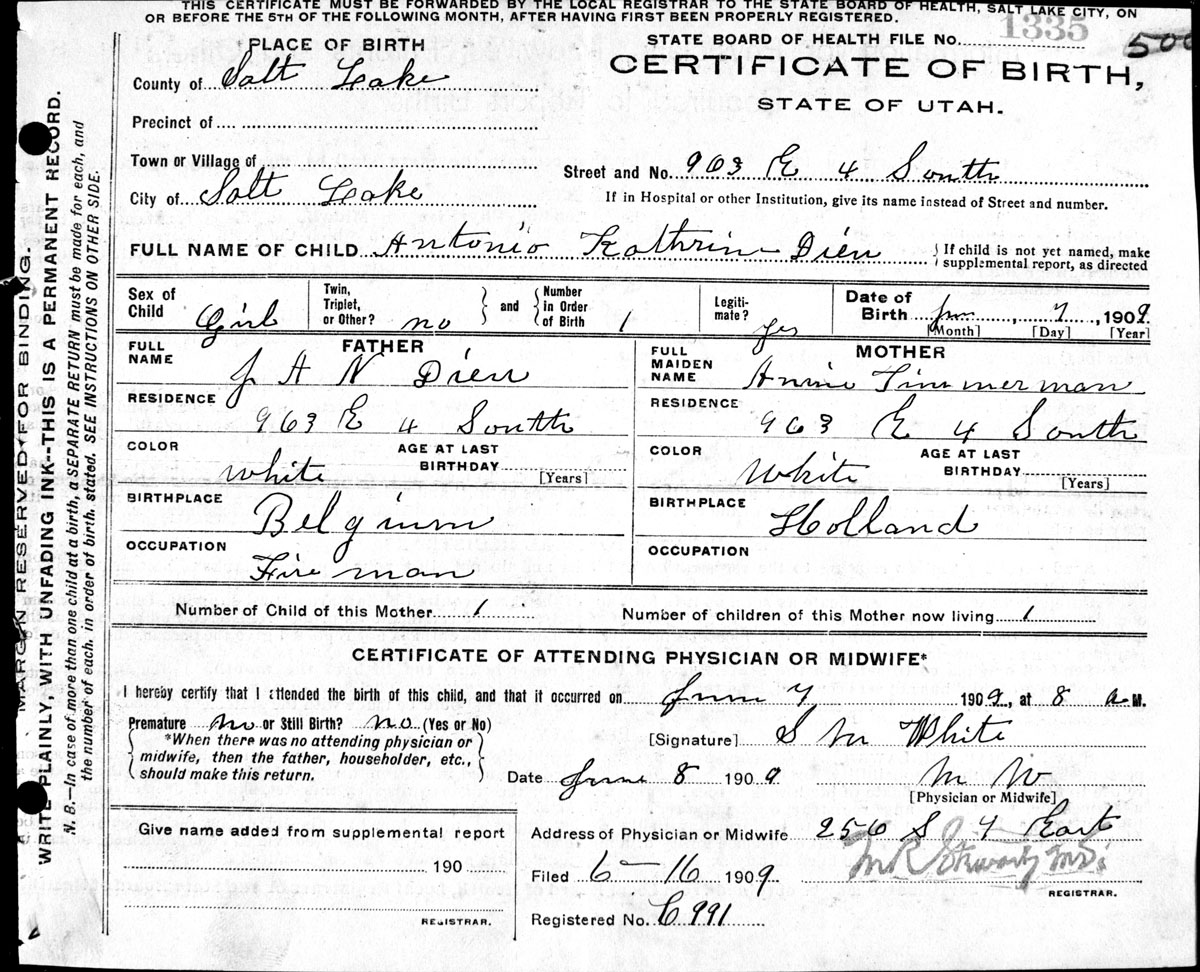 THIS CERTIFICATE MUST BE FORWARDED BY THE LOCAL REGISTRAR TO THE STATE BOARD OF HEALTH, SALT LAKE CITY, ON
OR BEFORE THE 5TH OF THE FOLLOWING MONTH, AFTER HAVING FIRST BEEN PROPERLY REGISTERED.
STATE BOARD OF HEALTH FILE NO. 1335
500
CERTIFICATE OF BIRTH,
STATE OF UTAH.
PLACE OF BIRTH
County of Salt Lake
Precinct of
Town or Village of
City of Salt Lake
Street and No. 963 E 4 South
If in Hospital or other Institution, give its name instead of Street and number.
FULL NAME OF CHILD Antonio Kathrin Dien
If child is not yet named, make supplemental report, as directed
Sex of Child Girl
Twin, Triplet, or Other? no
and Number in Order of Birth 1
Legitimate? yes
Date of Birth June, 7, 1909
[Month] [Day] [Year]
FATHER
FULL NAME J A N Dien
RESIDENCE
963 E 4 South
COLOR White
AGE AT LAST BIRTHDAY [Years]
BIRTHPLACE Belginm
OCCUPATION Fireman
MOTHER
FULL MAIDEN NAME Annie Timmerman
RESIDENCE
963 E 4 South
COLOR White
AGE AT LAST BIRTHDAY [Years]
BIRTHPLACE Holland
OCCUPATION
Number of Child of this Mother 1
Number of children of this Mother now living 1
CERTIFICATE OF ATTENDING PHYSICIAN OR MIDWIFE*
I hereby certify that I attended the birth of this child, and that it occurred on June 7 1909, at 8 a M.
Premature no or Still Birth? no (Yes or No)
*When there was no attending physician or
midwife, then the father, householder, etc.,
should make this return.
[Signature] S M White
Date June 8 1909
M W
[Physician or Midwife]
Give name added from supplemental report
190
REGISTRAR.
Address of Physician or Midwife 256 S 7 East
Filed 6-16 1909
REGISTRAR.
Registered No. C991
MARGIN RESERVED FOR BINDING.
WRITE PLAINLY, WITH UNFADING INK--THIS IS A PERMANENT RECORD.
N. B.—In case of more than one child at a birth, a SEPARATE RETURN must be made for each, and
the number of each, in order of birth, stated. SEE INSTRUCTIONS ON OTHER SIDE.